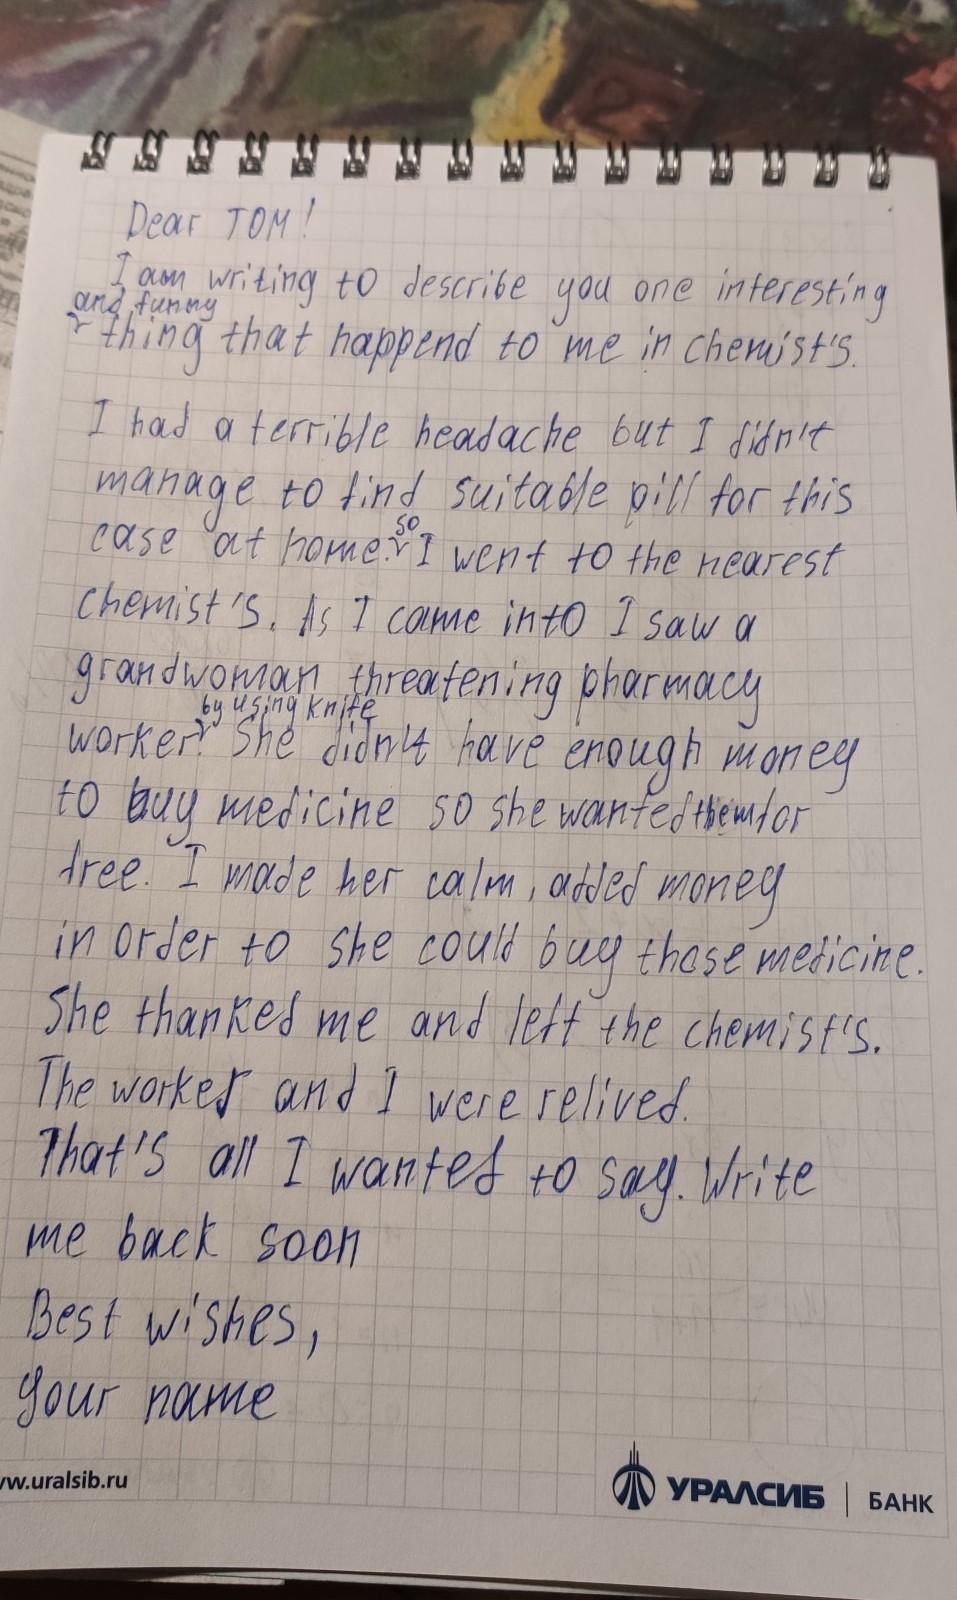 Dear TOM!
I am writing to describe you one interesting
and funny
thing that happend to me in chemist's.
I had a terrible headache but I didn't
manage to find suitable pill for this
case at home. so I went to the nearest
chemist's. As I came into I saw a
grandwoman threatening pharmacy
by using knife
worker. She didn't have enough money
to buy medicine so she wanted them for
free. I made her calm, added money
in order to she could buy those medicine.
She thanked me and left the chemist's.
The worker and I were relived.
That's all I wanted to say. Write
me back soon
Best wishes,
your name
ww.uralsib.ru
УРАЛСИБ | БАНК